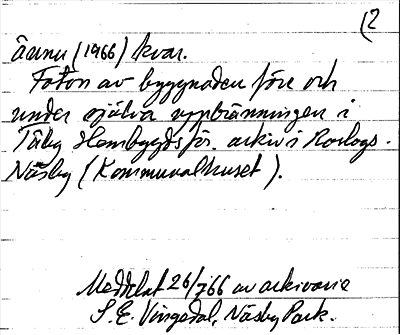 (2
ännu (1966) kvar.
Foton av byggnaden före och
under själva uppbränningen i
Täby Hembygdsför. arkiv i Roslags-
Näsby (Kommunalhuset).
Meddelat 26/7 66 av arkivarie
S.E. Vingedal, Näsby Park.